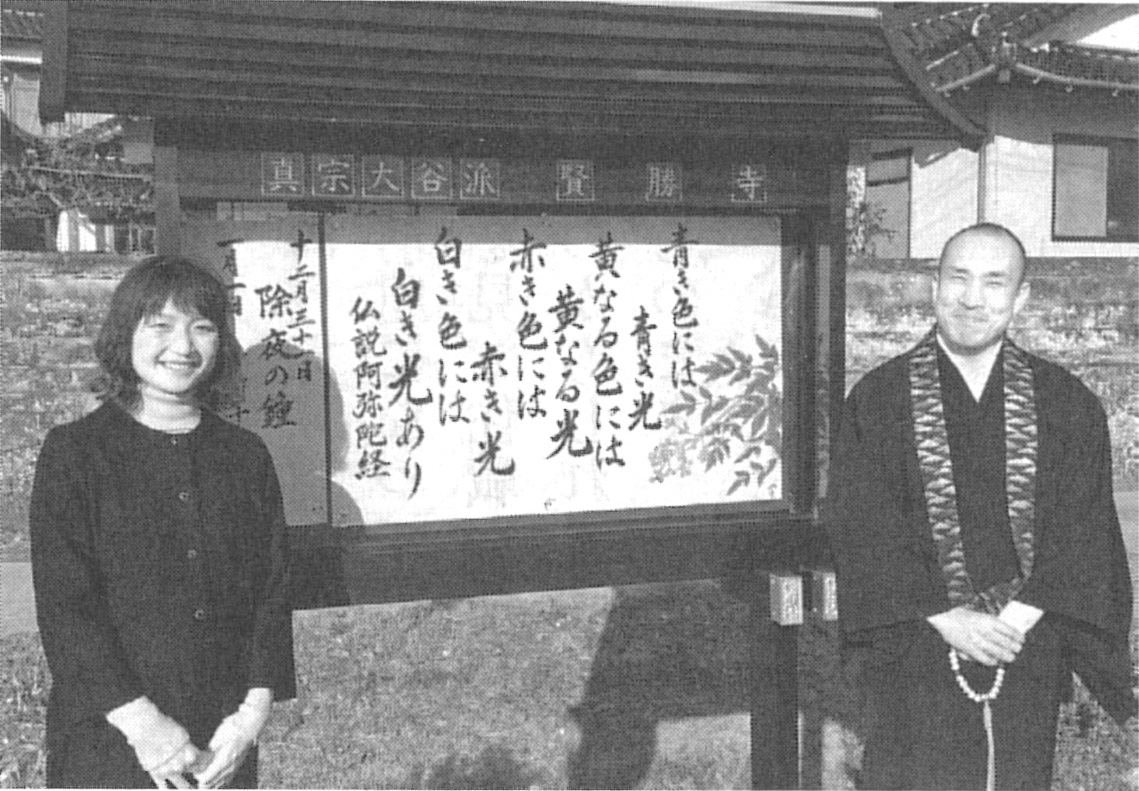 真宗大谷派 賢勝寺
青き色には
青き光
黄なる色には
黄なる光
赤き色には
赤き光
白き色には
白き光あり
仏説阿弥陀経
十二月三十一日
除夜の鐘
一月一日